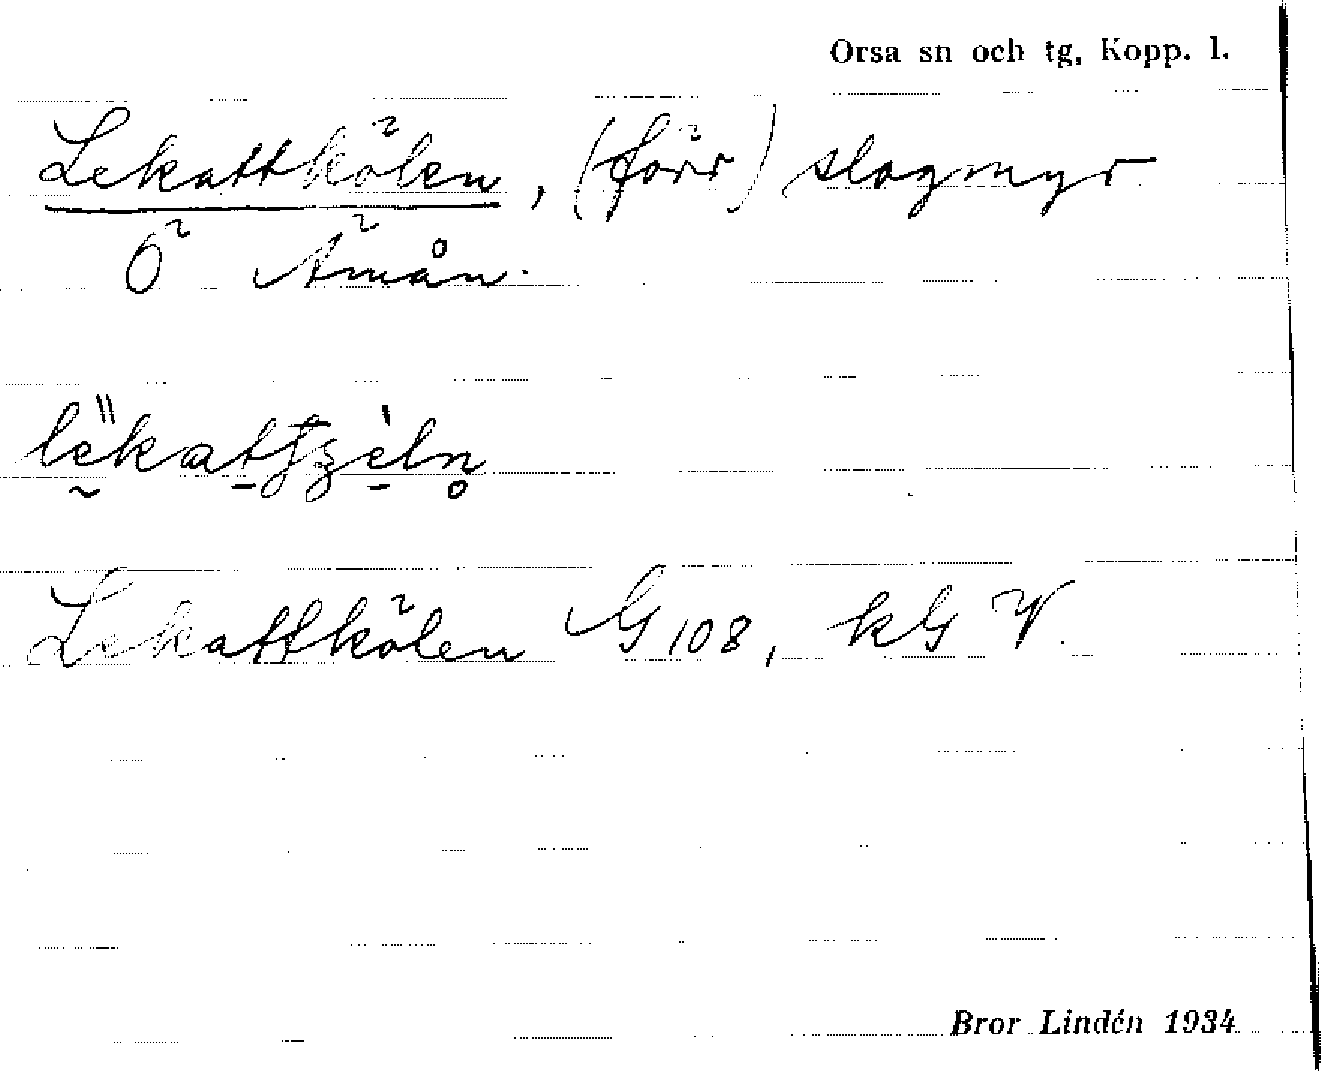 Orsa sn och tg, Kopp. l.
Lekattkölen, (förr) slogmyr
Ö Ämån.
Lekattkölen G 108, kG V.
Bror Lindén 1934